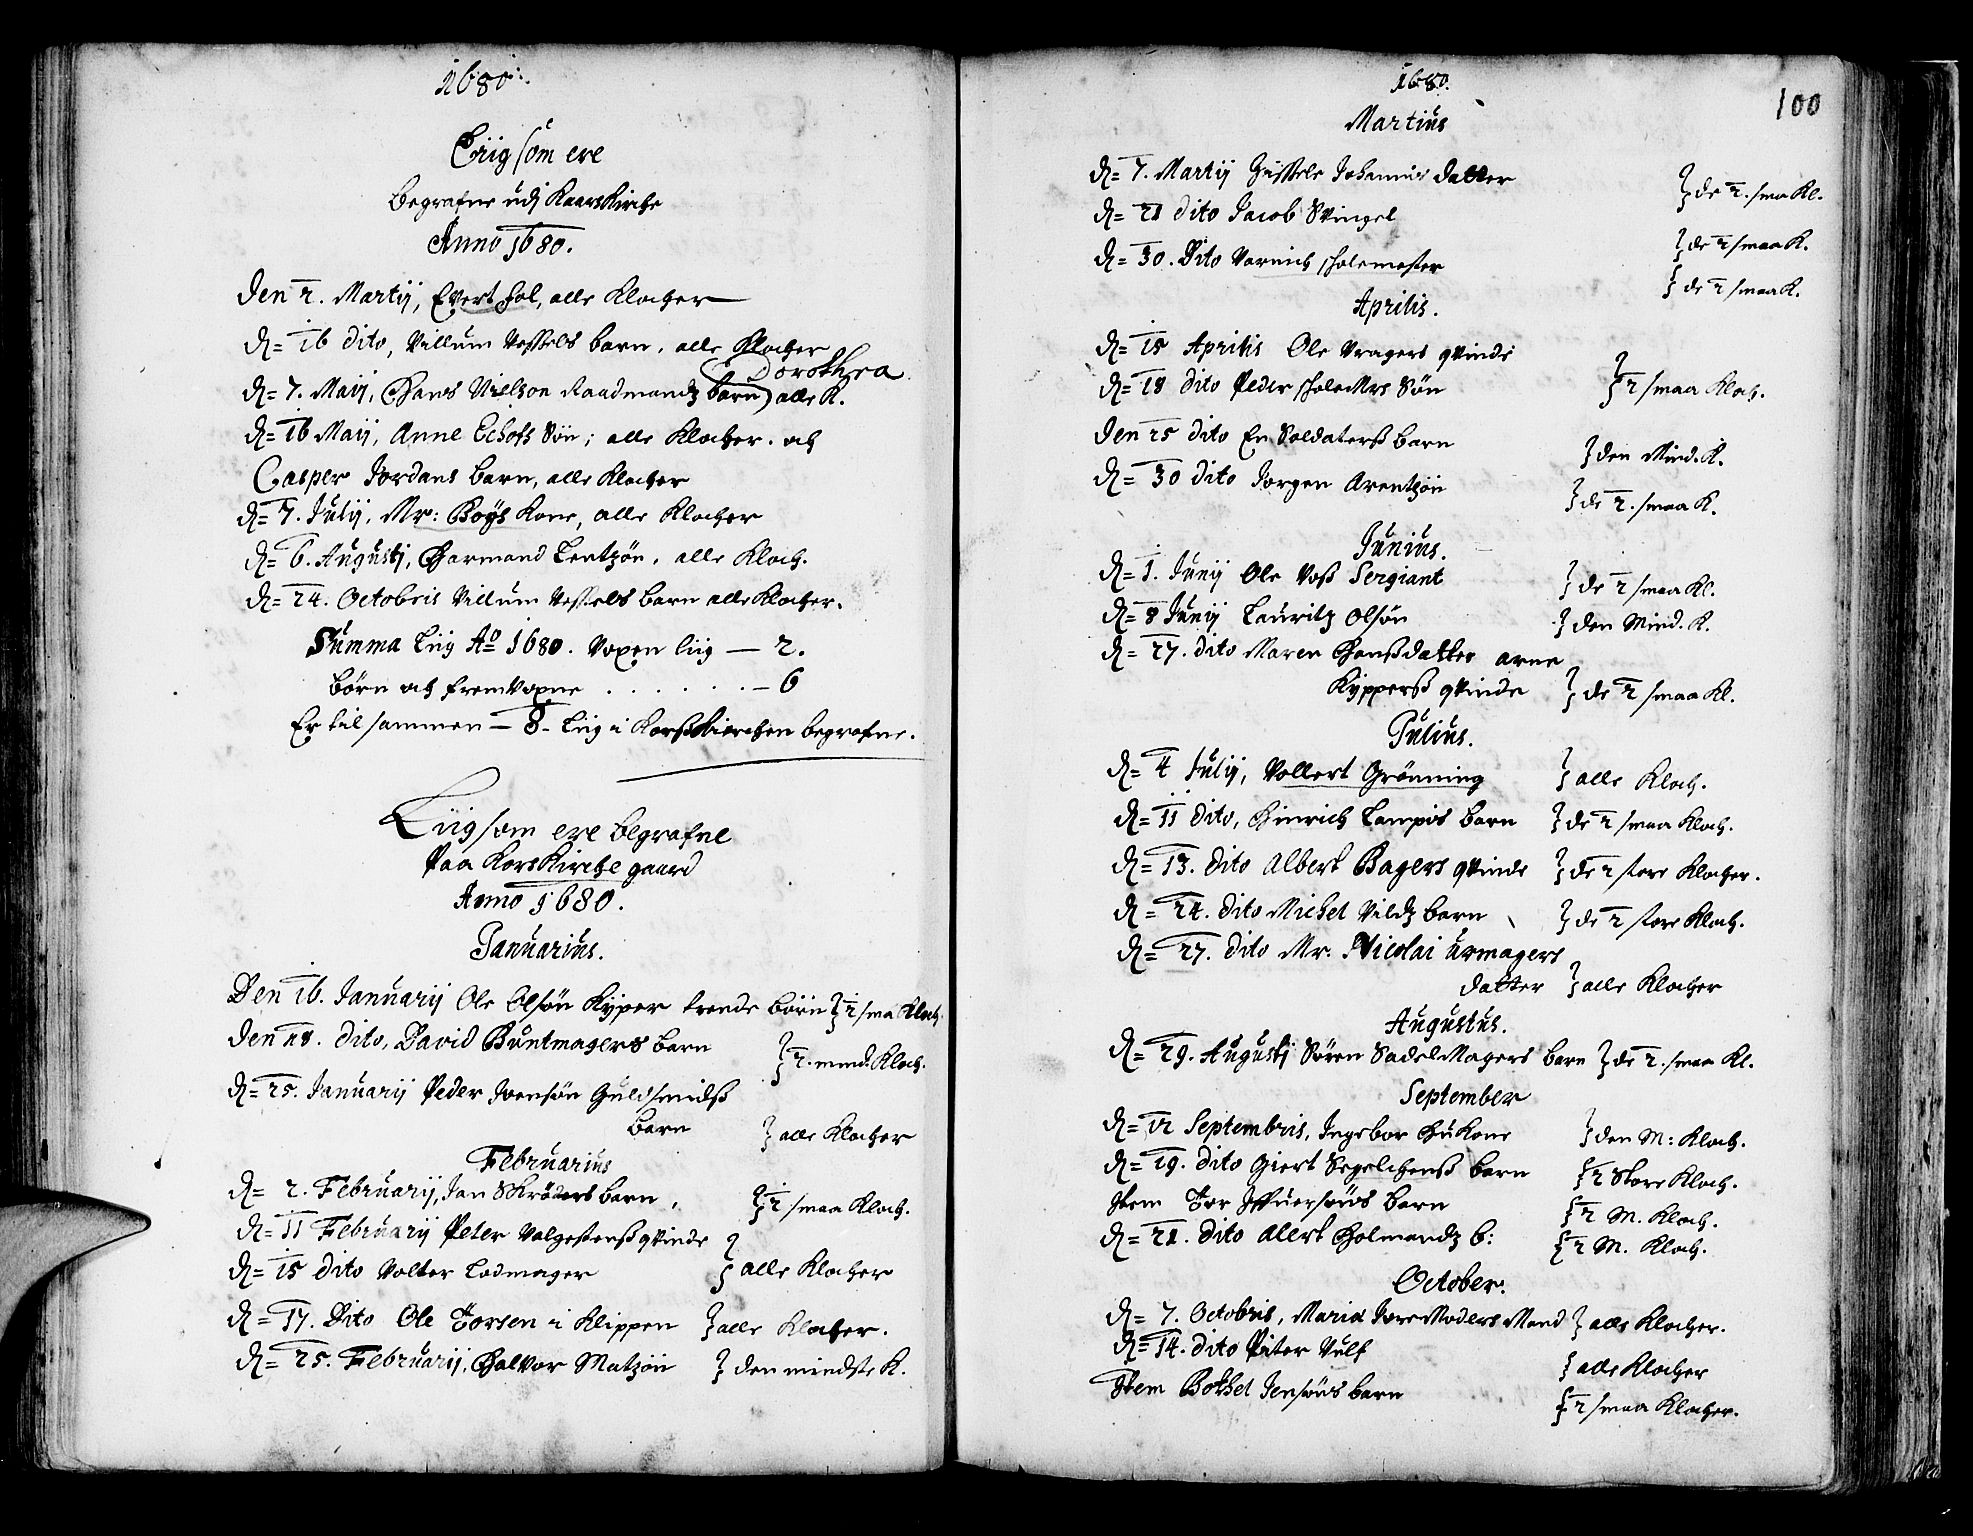 1680.
Liig som ere
begrafne udj KaarsKirche
Anno 1680.
Den 2. Martij, Evert Sal, alle Klocher
D= 16 dito, Villum Vessels barn, alle Klocher
Dorothea
D= 7. Maij, Hans Nielson Raadmandz barn alle K.
D= 16 Maij, Anne Echofs Søn; alle Klocher. och
Casper Jordans barn, alle Klocher
D= 7. Julij, Mr: Boÿs Kone, alle Klocher
D= 6. Augustj, Harmand Lentzøn, alle Kloch.
D= 24. Octobris Villum Vessels barn alle Klocher.
Summa Liig Ao 1680. Voxen liig — 2.
børn och fremvoxne . . . . . . — 6
Er til sammen — 8- Liig i Korsskierchen begrafne.
Liig som ere begrafne
Paa KorsKirche gaard
Anno 1680.
Januarius.
Den 16. Januarij Ole Olsøn Kyper trende børn } 2 sma Kloch.
Den 18. dito, David Buntmagers barn } 2. mind. Kloch.
D= 25. Januarij Peder Ivensøn Guldsmidss
barn } alle Klocher
Februarius
D= 2. Februarij, Jan Skrøders barn, } 2 smaa Kloch.
D= 11 Februarij Peter Valgestenss qvinde
D= 15 dito Volter Lodmager } alle Klocher
D= 17. Dito Ole Torsen i Klippen } alle Klocher.
D= 25. Februarij, Halvor Matzøn } den mindste K.
1680.
100
Martius
D= 7. Martij Gissele Johannis datter } de 2. smaa Kl.
D= 21 dito Jacob Svingel } de 2 smaa K.
D= 30. Dito Varnich skolemester } de 2 smaa K.
Aprilis.
D= 15 Aprilis Ole Vragers qvinde
D= 18 dito Peder skoleMrs Søn } 2 smaa Kloch.
Den 25 dito En Soldaterss barn } den Mind. K.
D= 30 dito Jørgen Arentzøn } de 2. smaa K.
Junius.
D= 1. Junij Ole Voss Sergiant } de 2 smaa Kl.
D= 8 Junij Lauritz Olsøn } den Mind. K.
D= 27. dito Maren Hanssdatter arne
Kypperss qvinde } de 2 smaa Kl.
Julius.
D= 4 Julij, Vollert Grønning } alle Kloch.
D= 11 dito, Hinrich Lampis barn } de 2 smaa Kloch.
D= 13. dito Albert Bagers qvinde } de 2 store Klocher.
D= 24. dito Michel Vildz barn } de 2 store Kloch.
D= 27. dito Mr: Nicolai urmagers
datter } alle Klocher
Augustus.
D= 29. Augustj Søren SadelMagers barn } de 2. smaa Kl.
September
D= 12 Septembris, Ingebor HuKone } den M: Kloch.
D= 19. dito Giert Segelchenss barn } 2 Store Kloch.
Item Tor barn } 2 M. Kloch.
D= 21. dito Alert Holmandz b: } 2 M. Kloch.
October.
D= 7. Octobris, Maria JoreModers Mand } alle Klocher.
D= 14. dito Piter Vulf } alle Klocher
Item Bothel Jensøns barn } 2 smaa Klocher.